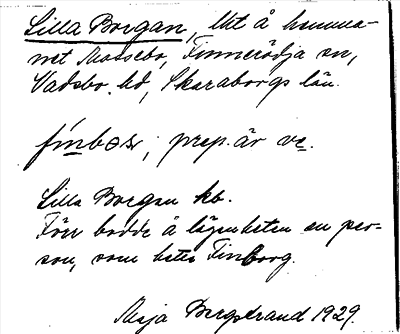 Lilla Borgan, lht å hemma-
net Mosebo, Finnerödja sn,
Vadsbo hd, Skaraborgs län.
finbor; prep. är ve.
Lilla Borgan kb.
Förr bodde å lägenheten en per-
son, som hette Finborg.
Maja Bergstrand 1929.